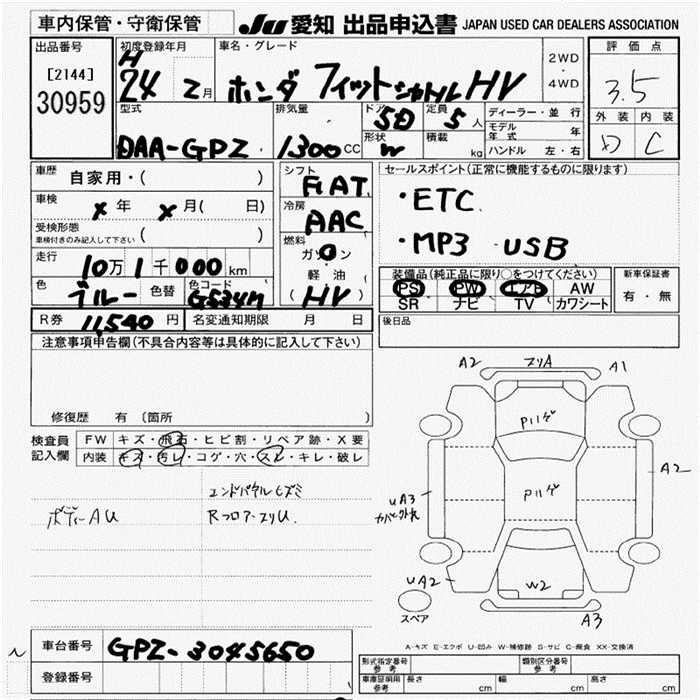 車内保管・守衛保管
JU 愛知 出品申込書 JAPAN USED CAR DEALERS ASSOCIATION
出品番号
[2144]
30959
初度登録年月
H
24 2月
車名・グレード
ホンダ フィットシャトル HV
2WD
・
4WD
評価点
3.5
外装 内装
D C
型式
DAA-GPZ
排気量
1300cc
ドア
5D
形状
W
定員
5人
積載
kg
ディーラー・並行
モデル年式 年
ハンドル 左・右
車歴
自家用・( )
車検
× 年 × 月( 日)
受検形態
車検付きのみ記入して下さい ( )
走行
10万1千000km
色
ブルー
色替
色コード
G534M
シフト
FLAT
冷房
AAC
燃料
ガソリン
軽油
(HV)
セールスポイント(正常に機能するものに限ります)
・ETC
・MP3 USB
装備品(純正品に限り○をつけてください)
PS PW エアB AW
SR ナビ TV カワシート
新車保証書
有・無
R券 11,540円
名変通知期限 月 日
後日品
注意事項申告欄(不具合内容等は具体的に記入して下さい)
修復歴 有 〔箇所
検査員
記入欄
FW キズ・飛石・ヒビ割・リペア跡・X要
内装 キズ・汚レ・コゲ・穴・スレ・キレ・破レ
エンドパネルヒズミ
ボディーAU
RフロアースリU.
A2 スリA A1
Pハゲ
A2
Pハゲ
UA3
UA2
W2
スペア
A3
A-キズ E-エクボ U-凹み W-補修跡 S-サビ C-腐食 XX-交換済
車台番号
GPZ-3045650
登録番号
型式指定番号
参考
類別区分番号
参考
車庫証明用
参考
長さ cm 幅 cm 高さ cm